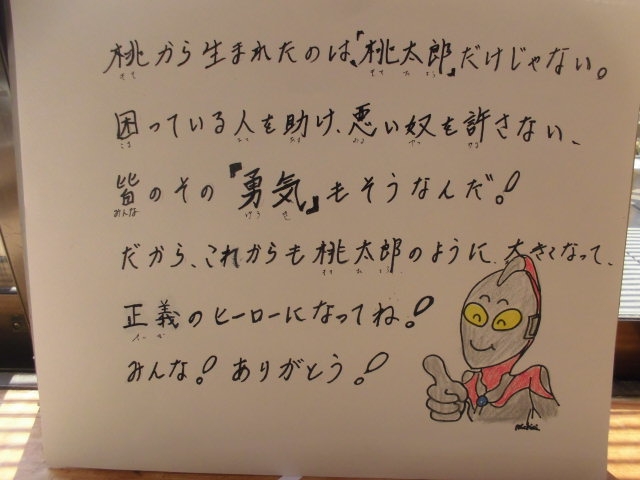 桃から生まれたのは、『桃太郎』だけじゃない。
困っている人を助け、悪い奴を許さない、
皆のその『勇気』もそうなんだ!
だから、これからも桃太郎のように、大きくなって、
正義のヒーローになってね!
みんな!ありがとう!